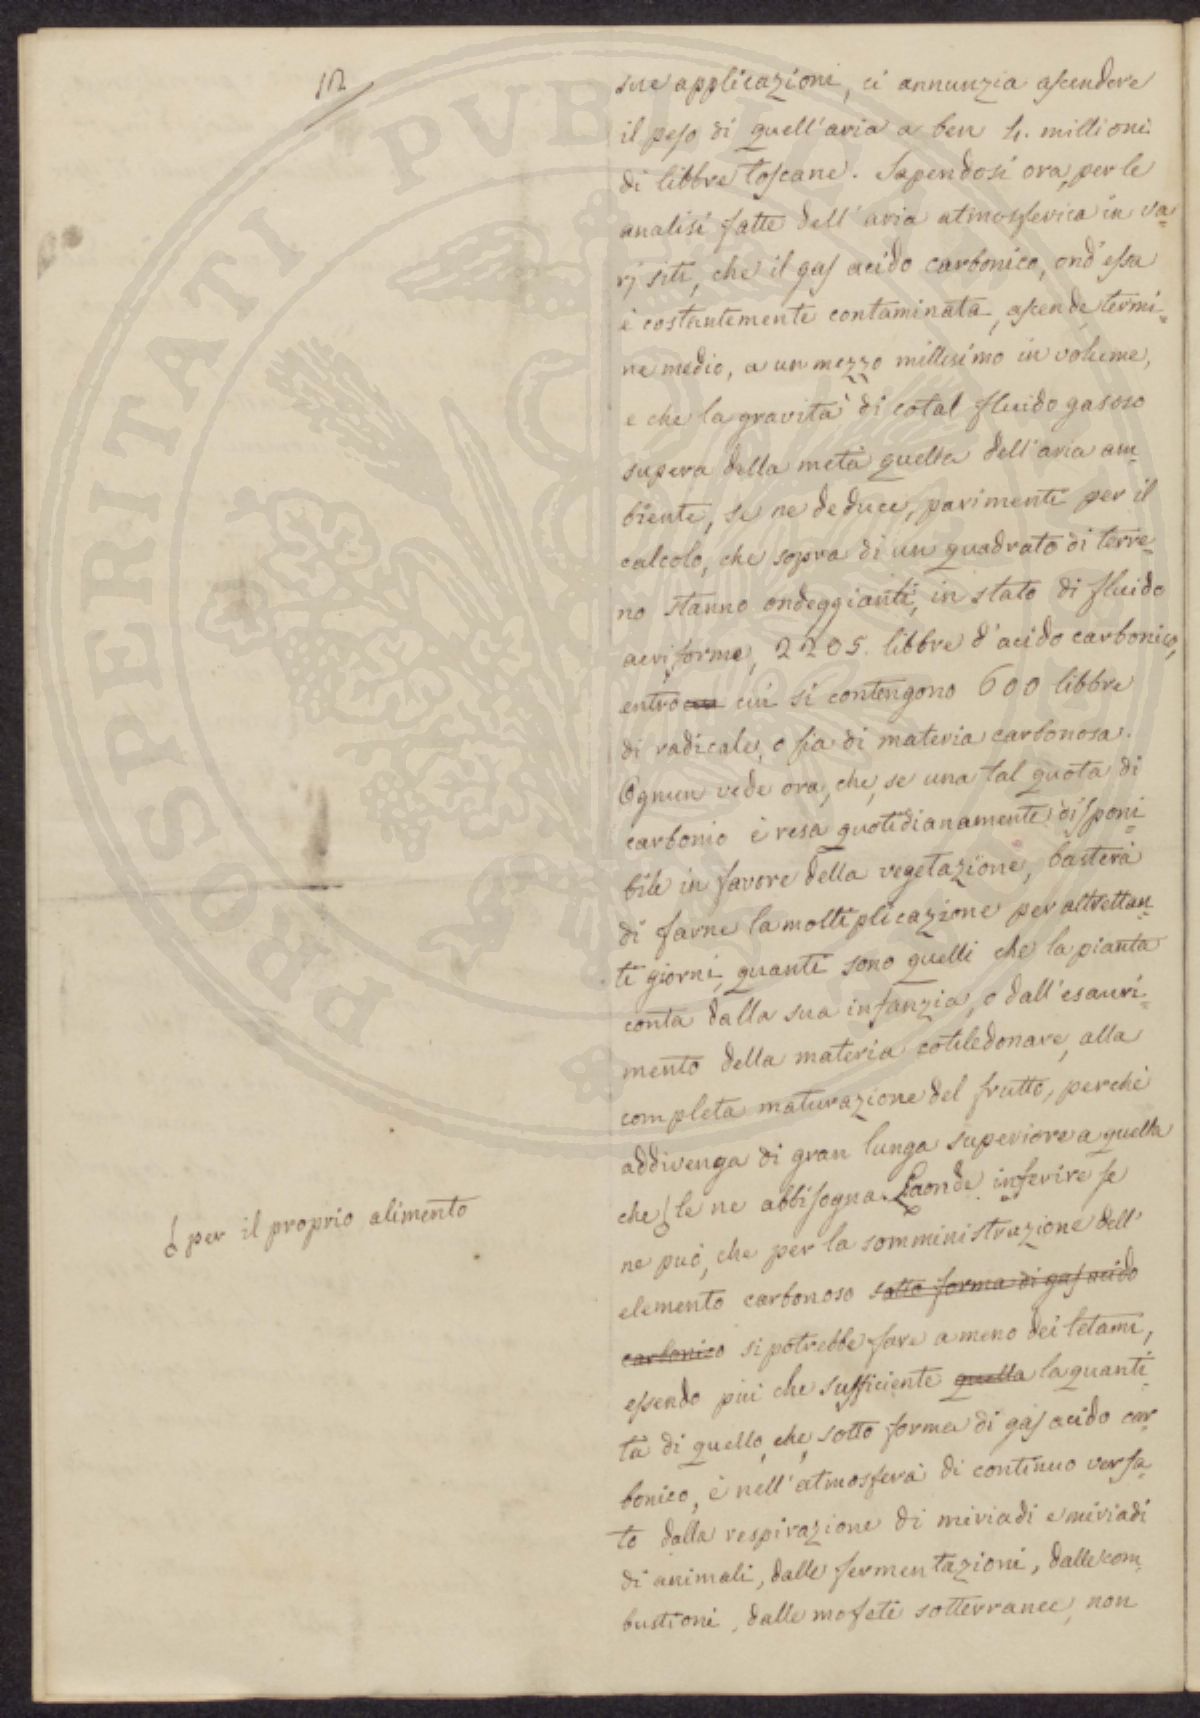 12
sue applicazioni, ci annunzia ascendere
il peso di quell'aria a ben 4. millioni
di libbre toscane. Sapendosi ora, per le
analisi fatte dell'aria atmosferica in va=
rj siti, che il gas acido carbonico, ond'essa
è costantemente contaminata, ascende, termi=
ne medio, a un mezzo millesimo in volume,
e che la gravità di cotal fluido gasoso
supera della metà quella dell'aria am=
biente, se ne deduce, parimente per il
calcolo, che sopra di un quadrato di terre=
no stanno ondeggianti, in stato di fluido
aeriforme, 2205. libbre d'acido carbonico,
entro cui si contengono 600 libbre
di radicale, o sia di materia carbonosa.
Ognun vede ora, che, se una tal quota di
carbonio è resa quotidianamente disponi=
bile in favore della vegetazione, basterà
di farne la moltiplicazione per altrettan=
ti giorni, quanti sono quelli che la pianta
conta dalla sua infanzia, o dall'esauri=
mento della materia cotiledonare, alla
completa maturazione del frutto, perchè
addivenga di gran lunga superiore a quella
che le ne abbisogna. Laonde inferire se
per il proprio alimento
ne può, che per la somministrazione dell'
elemento carbonoso sotto forma di gas acido
carbonico si potrebbe fare a meno dei letami,
essendo più che sufficiente quella la quanti=
tà di quello, che, sotto forma di gas acido car=
bonico, è nell'atmosfera di continuo versa=
to dalla respirazione di miriadi e miriadi
di animali, dalle fermentazioni, dalle com=
bustioni, dalle mofete sotterranee, non
PROSPERITATI PUBLICAE